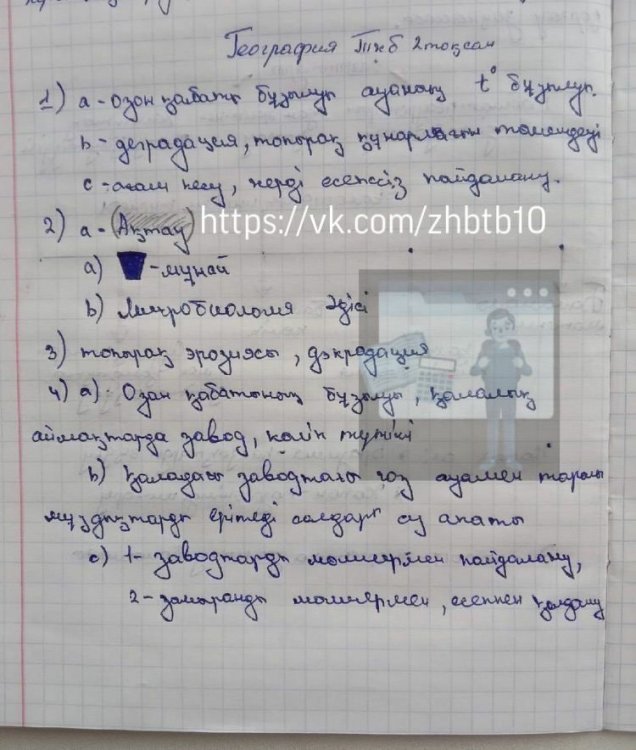 География ТЖБ 2 тоқсан
1) а - озон қабаты бұзылуы ауаның t° бұзылуы.
b - деградация, топырақ құнарлығын төмендеуі
с - ағаш кесу, жерді есепсіз пайдалану.
2) а - (Ақтау) https://vk.com/zhbtb10
а) - мұнай
b) Микробиология әдісі
3) топырақ эрозиясы, дэкродация
4) а) Озон қабатының бұзылуы, қамалық
аймақтарда завод, көлік түтіні
b) Қаладағы заводтағы газ ауамен таралы
мұздықтарды ерітеді салдары су апаты
с) 1- заводтарды мөлшермен пайдалану,
2 - замыранды мөлшермен, есеппен қолдану